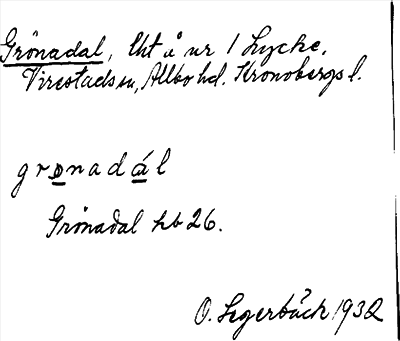 Grönadal, lht å nr 1 Lycke,
Virestads sn, Allbo hd. Kronobergs l.
grønadál
Grönadal hb 26.
O. Segerbäck 1932